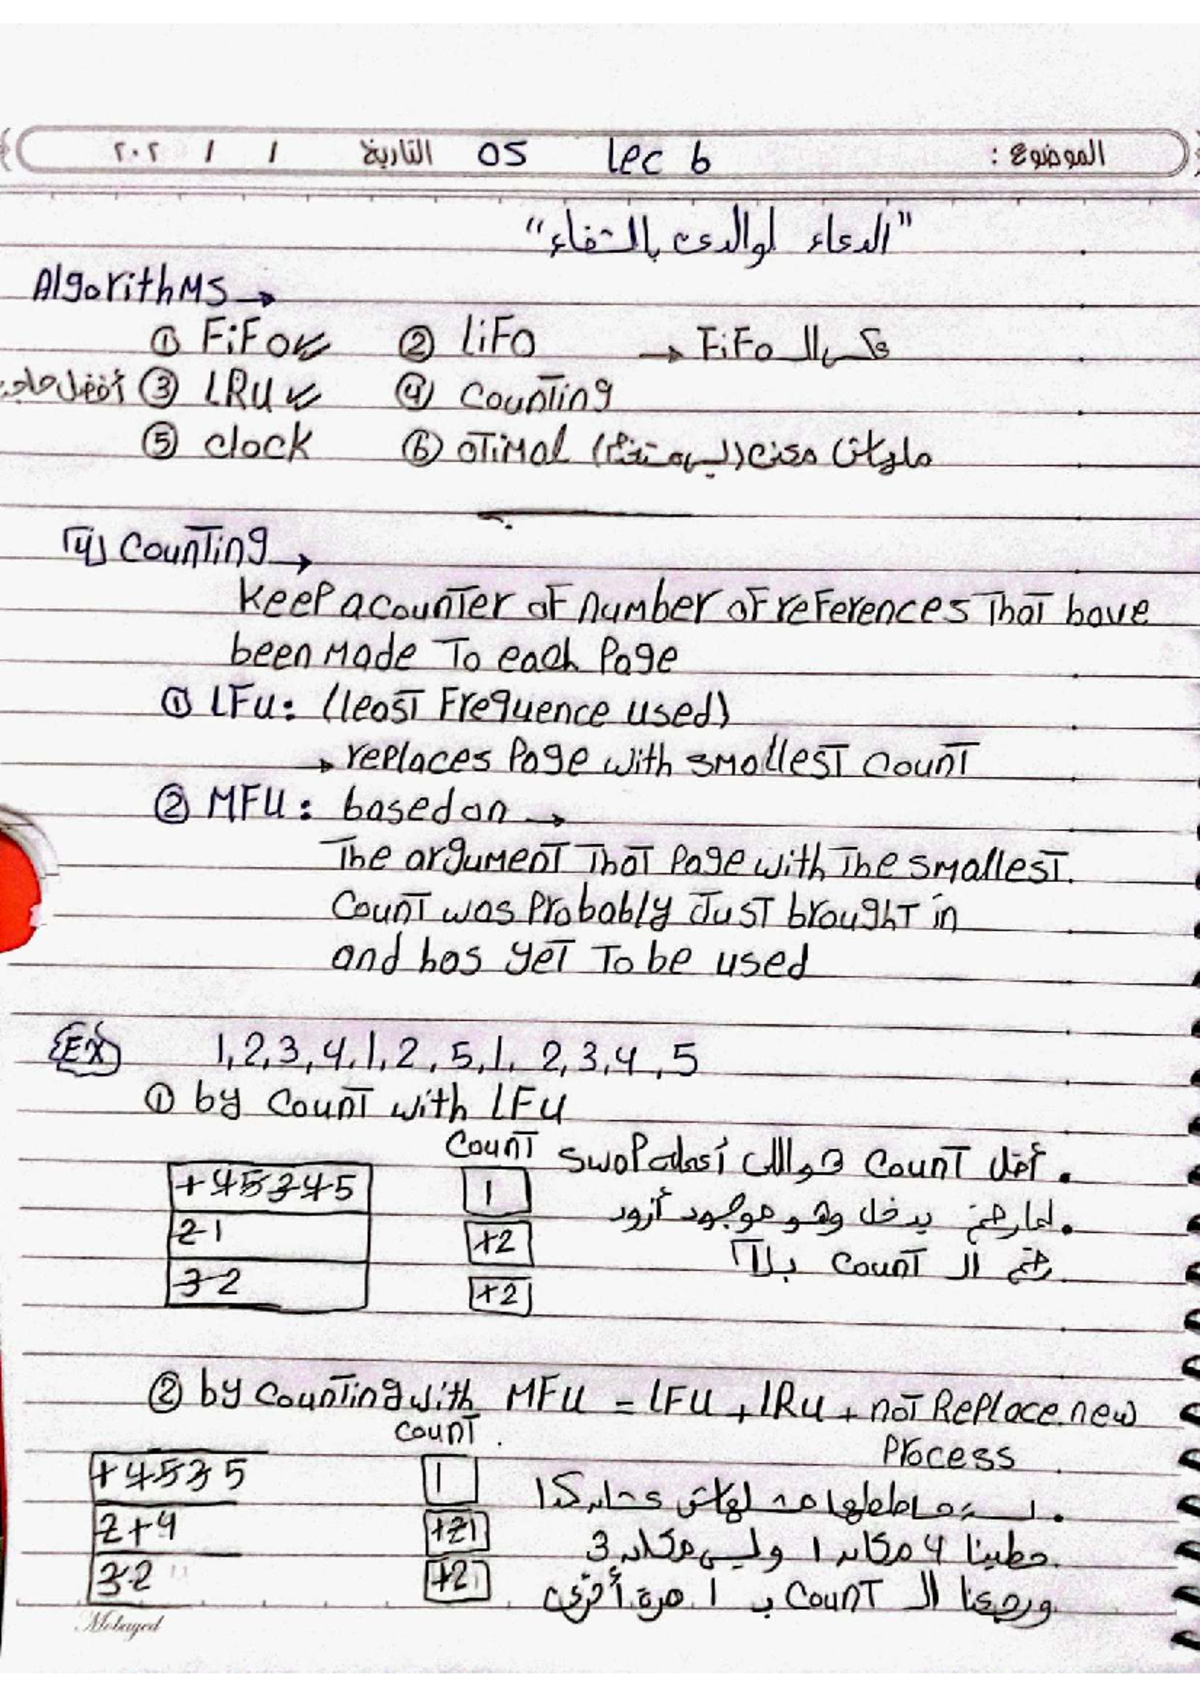 الموضوع : Lec 6 OS التاريخ / / ٢٠٢
"الدعاء لوالدى بالشفاء"
Algorithms →
① FiFo ② LiFo → FiFo عكس الـ
③ LRU ④ Counting
⑤ clock ⑥ oTimal
[4] Counting →
Keep a counter of number of references That have
been Made To each Page
① LFu: (least Frequence used)
→ replaces Page with smallest Count
② MFU: based on →
The argument That Page with The smallest.
Count was Probably Just brought in
and has yet To be used
EX 1,2,3,4,1,2,5,1,2,3,4,5
① by Count with LFU
Count
+45345 1
21 +2
32 +2
. أقل Count هو اللى أعمله swap
. لما رقم يدخل وهو موجود أزود
رقم الـ Count بـ 1
② by Counting with MFU = LFU + LRU + not Replace new
Process
Count
+4535 1
2+4 +21
32 +2
حطينا 4 مكان 1 وليس مكان 3
ورجعنا الـ Count بـ 1 مرة أخرى
Mobayed